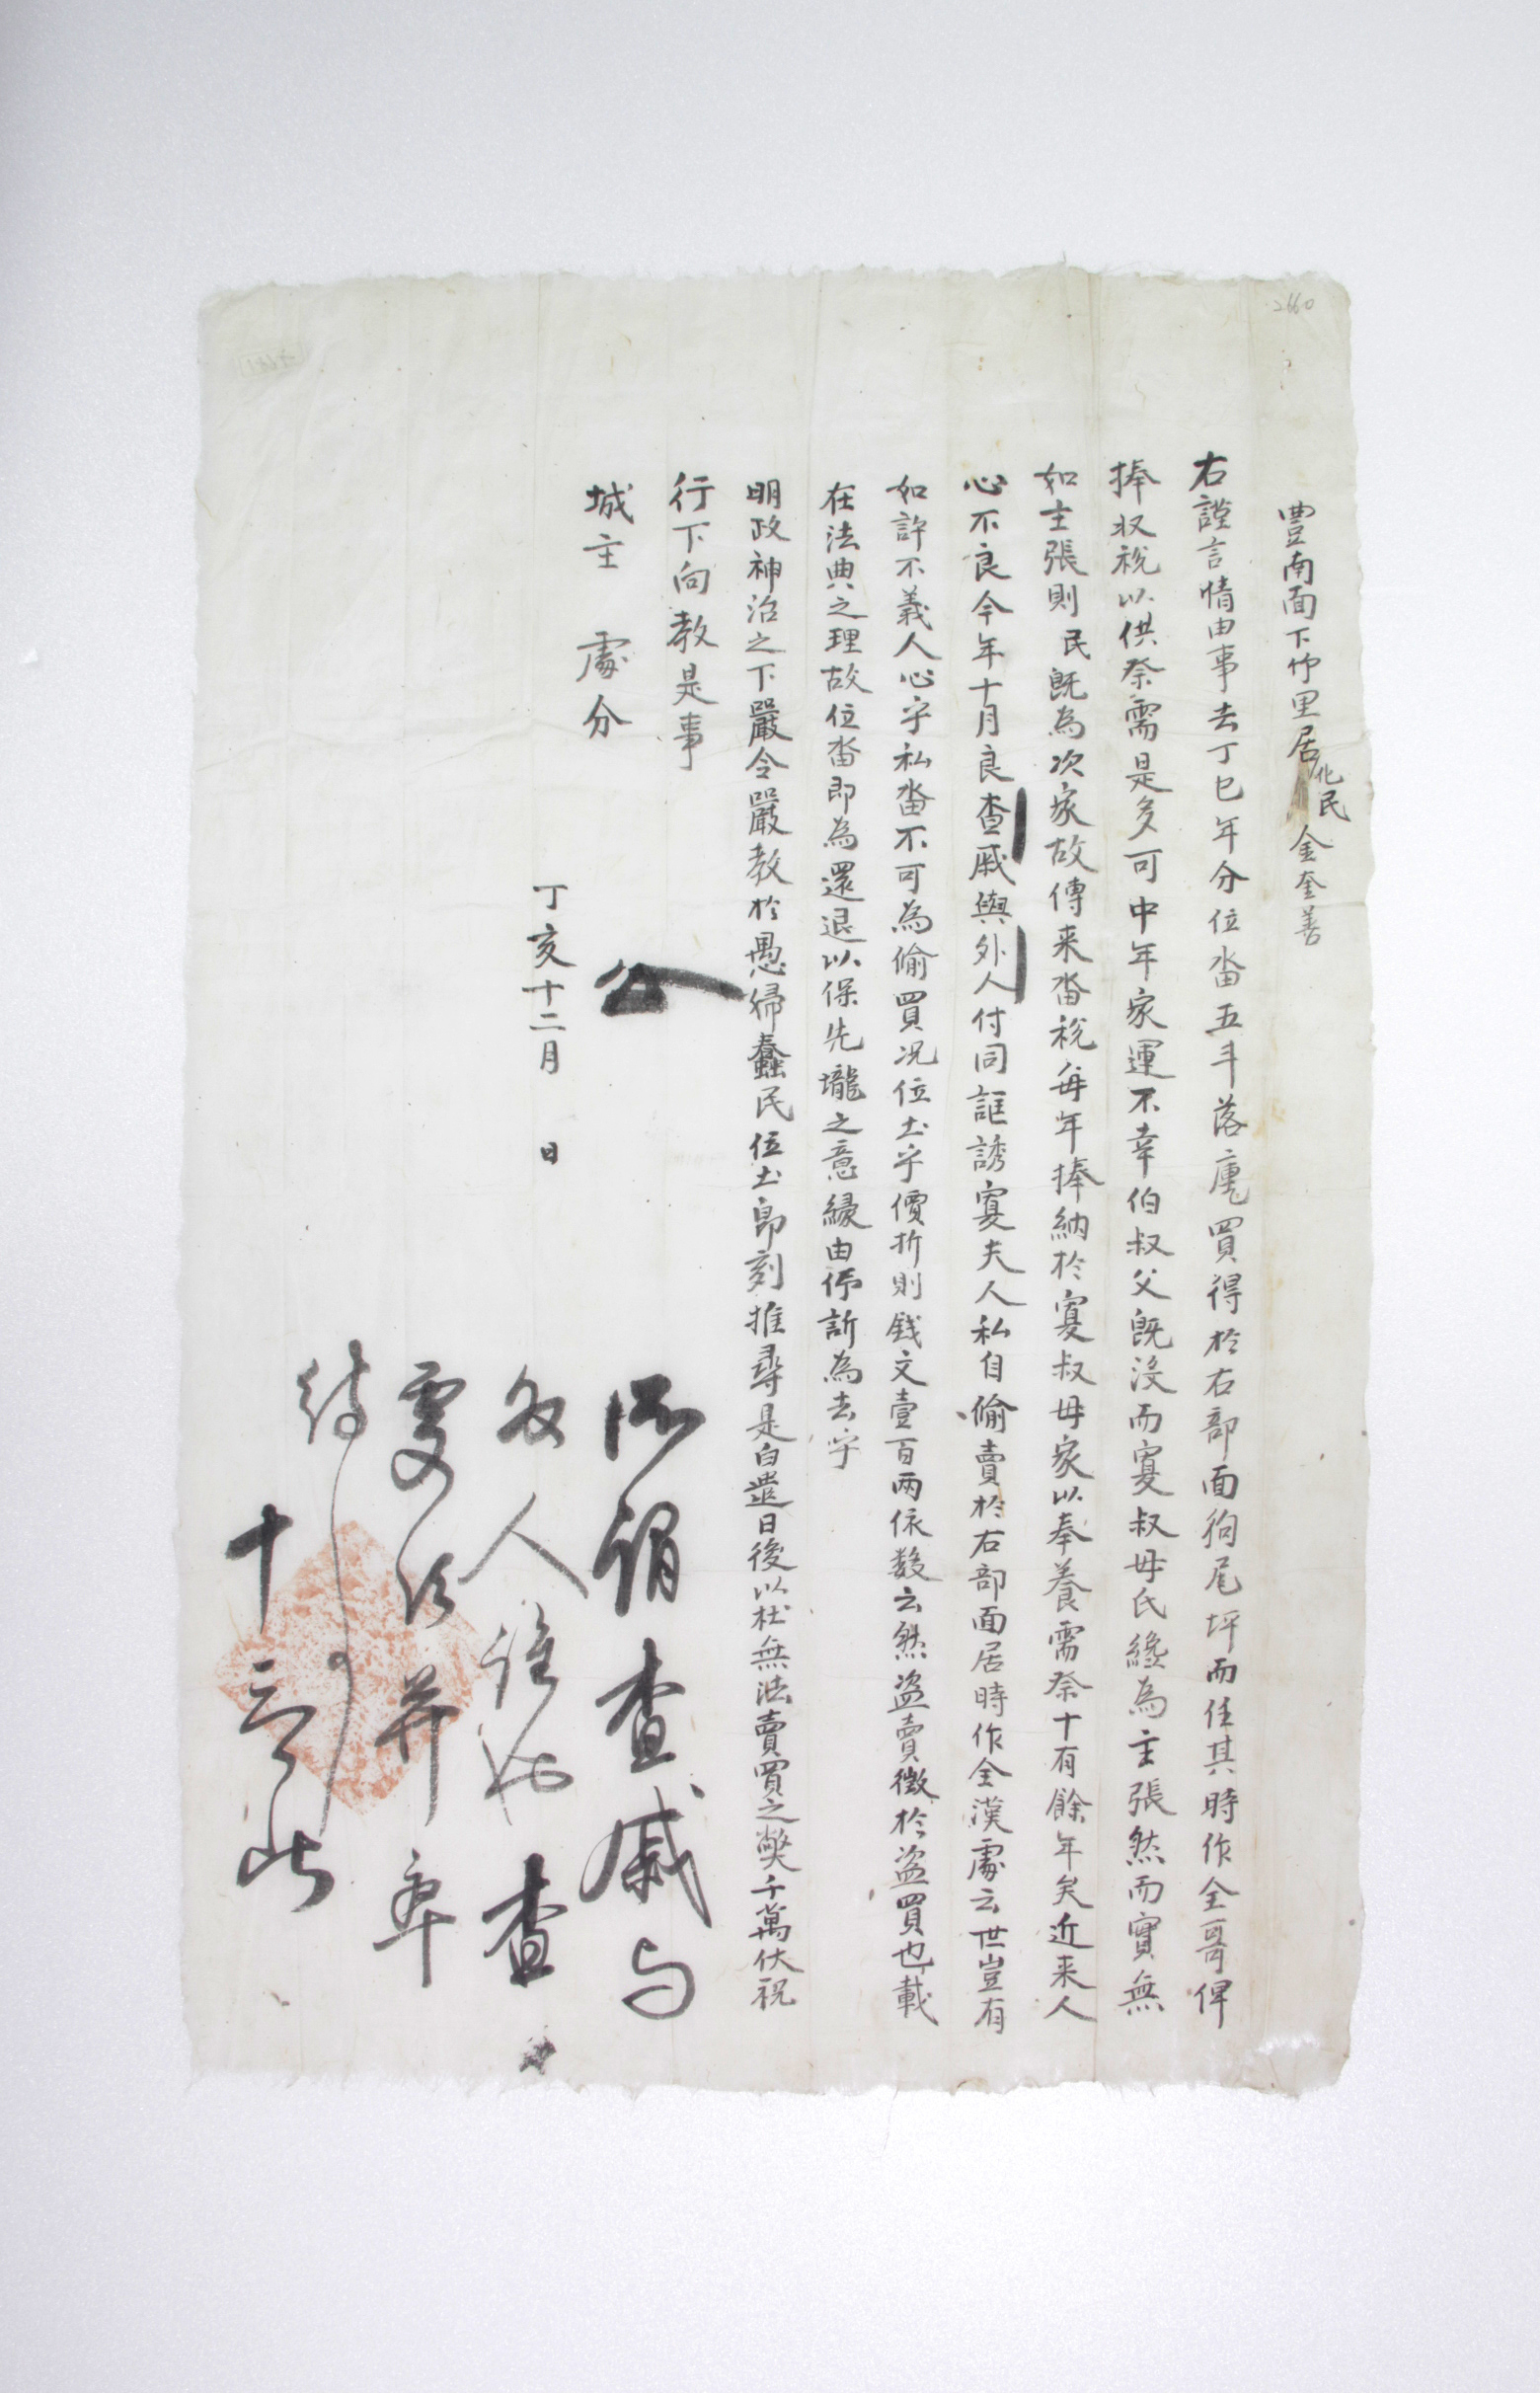 2660
豊南面下仰里居化民金奎善
右謹言情由事去丁巳年分位畓五斗落庫買得於右部面狗尾坪而任其時作全哥俾
捧収稅以供祭需是多可中年家運不幸伯叔父旣没而寡叔母氏纔為主張然而實無
如主張則民旣為次家故傳来畓稅每年捧納於寡叔母家以奉養需祭十有餘年矣近来人
心不良今年十月良査戚與外人付同誆誘寡夫人私自偷賣於右部面居時作全漢處云世豈有
如許不義人心乎私畓不可為偷買况位土乎價折則錢文壹百兩依数云然盗賣徵於盗買也載
在法典之理故位畓即為還退以保先壠之意緣由仰訴為去乎
明政神治之下嚴令嚴教於愚婦蠢民位土即刻推尋是白遣日後以杜無法賣買之獘千萬伏祝
行下向教是事
城主 處分
丁亥十二月 日
所謂査戚与
外人誰也査
更次并率
待
十二月